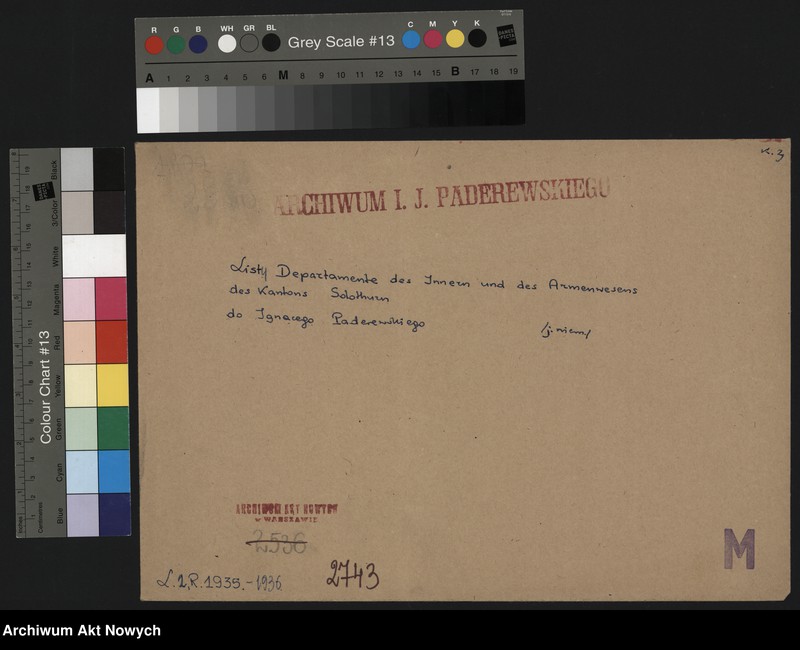 R G B WH GR BL Grey Scale #13 C M Y K
A 1 2 3 4 5 6 M 8 9 10 11 12 13 14 15 B 17 18 19
Colour Chart #13
Black
3/Color
White
Magenta
Red
Yellow
Green
Cyan
Blue
Inches
Centimetres
K. 3
ARCHIWUM I. J. PADEREWSKIEGO
Listy Departamente des Innern und des Armenwesens
des Kantons Solothurn
do Ignacego Paderewskiego /j. niem/
ARCHIWUM AKT NOWYCH
w WARSZAWIE
2536
L. 2, R. 1935.-1936
2743
M
Archiwum Akt Nowych